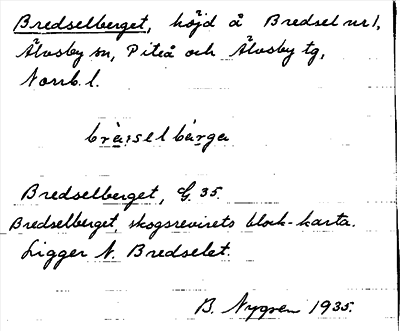 Bredselberget, höjd å Bredsel nr 1,
Älvsby sn, Piteå och Älvsby tg,
Norrb. l.
brè̀ₐ:sel bàrga
Bredselberget, G. 35.
Bredselberget, skogsrevirets block-karta.
Ligger N. Bredselet.
B. Nygren 1935.